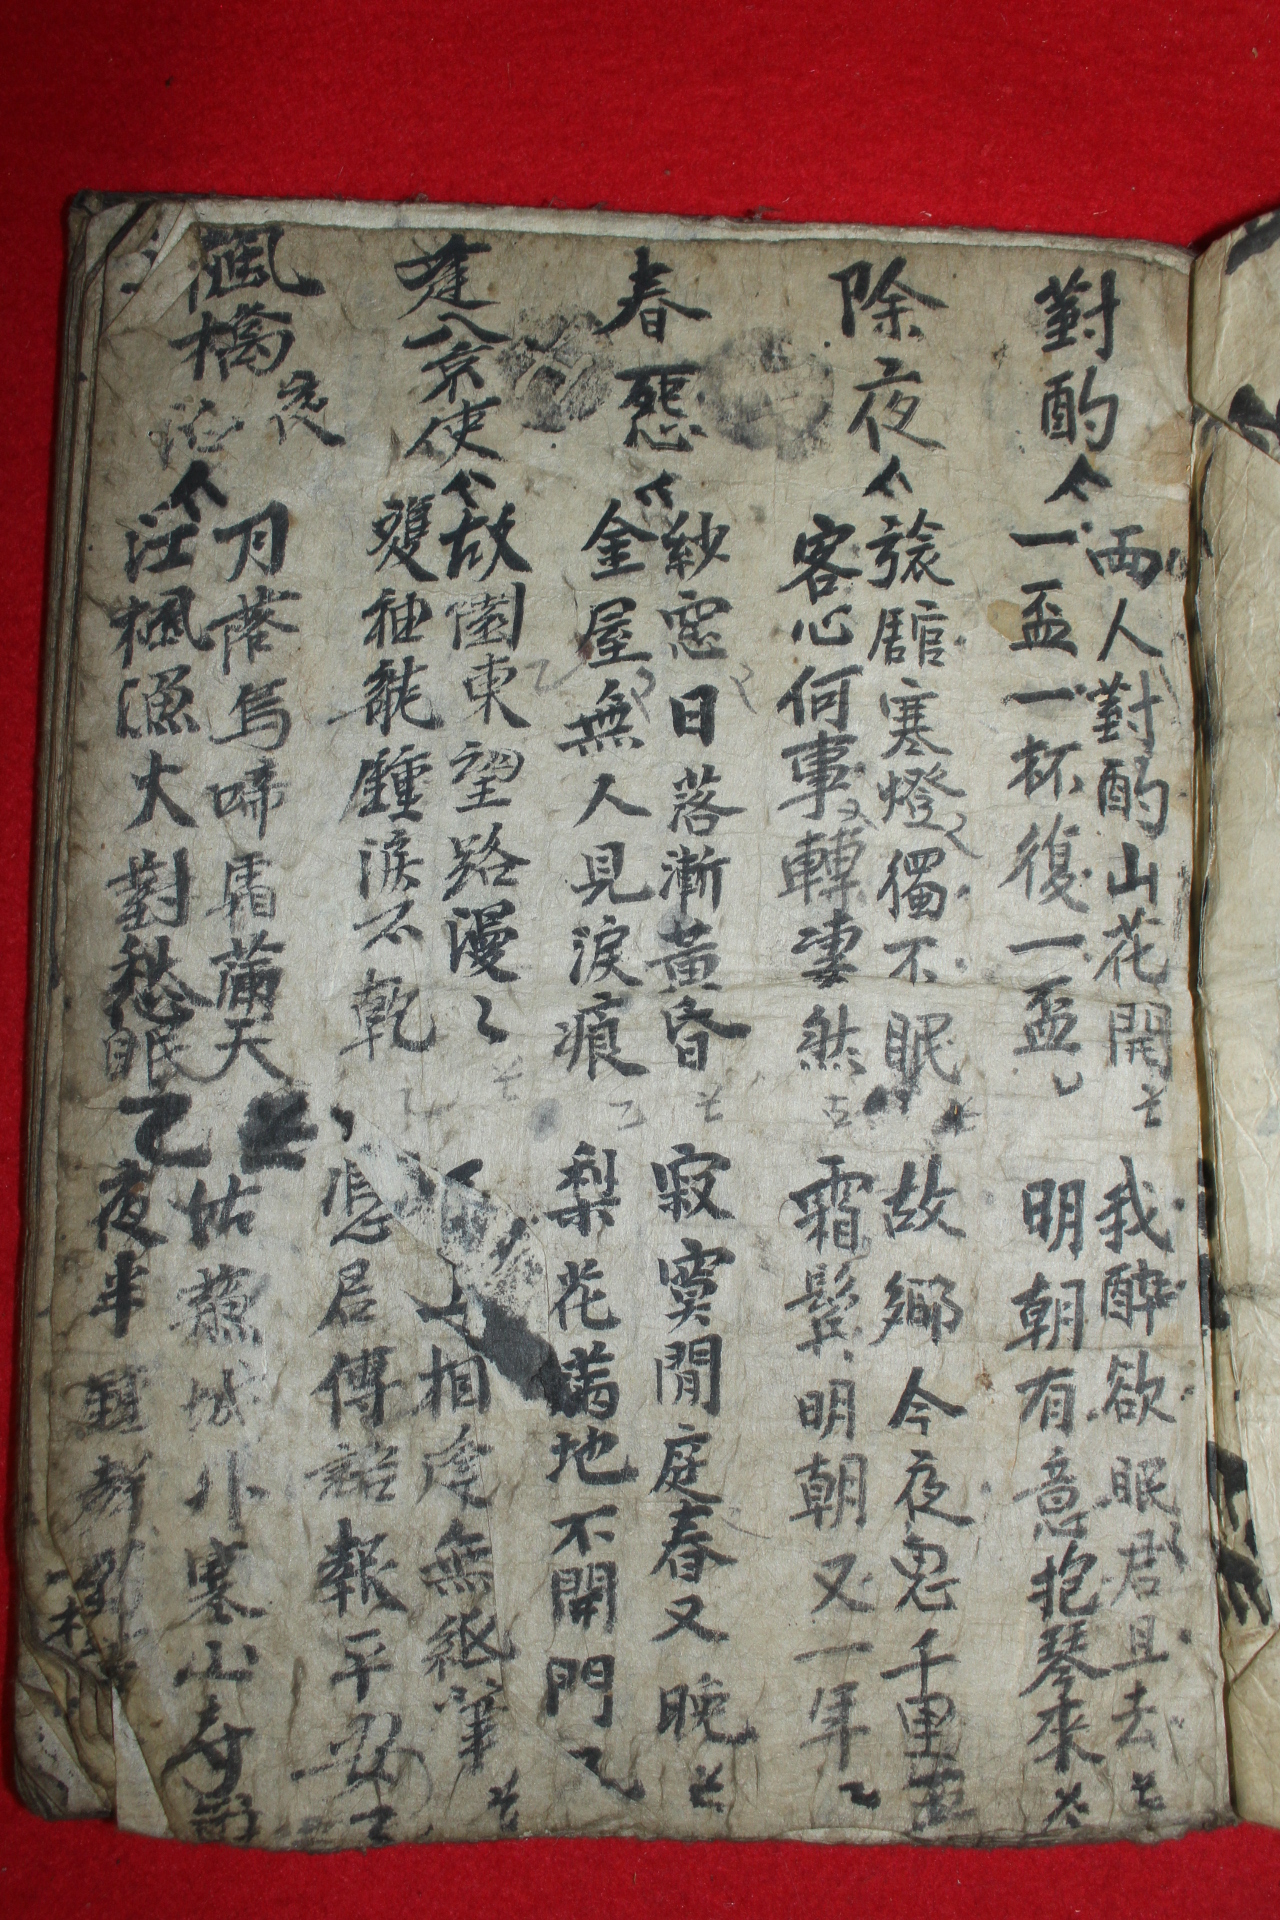 對酌
兩人對酌山花開 我醉欲眠君且去
一盃一杯復一盃 明朝有意抱琴來
除夜
旅舘寒燈獨不眠 故鄉今夜思千里
客心何事轉凄然 霜鬓明朝又一年
春怨
紗窓日落漸黃昏 寂寞閒庭春又晚
金屋無人見淚痕 梨花滿地不開門
逢入京使
故園東望路漫〻 相逢無紙筆
雙袖龍鍾淚不乾 憑君傳語報平安
楓橋夜泊
月落烏啼霜滿天 姑蘇城外寒山寺
江楓漁火對愁眠 夜半鍾